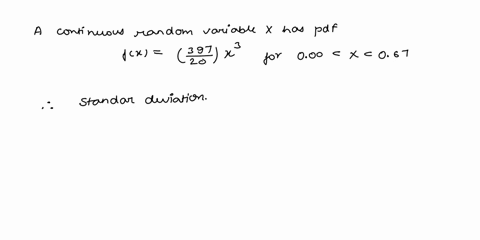 A continuous random variable X has pdf
f(x) = (397/20) x³ for 0.00 < x < 0.67
∴ Standar deviation.